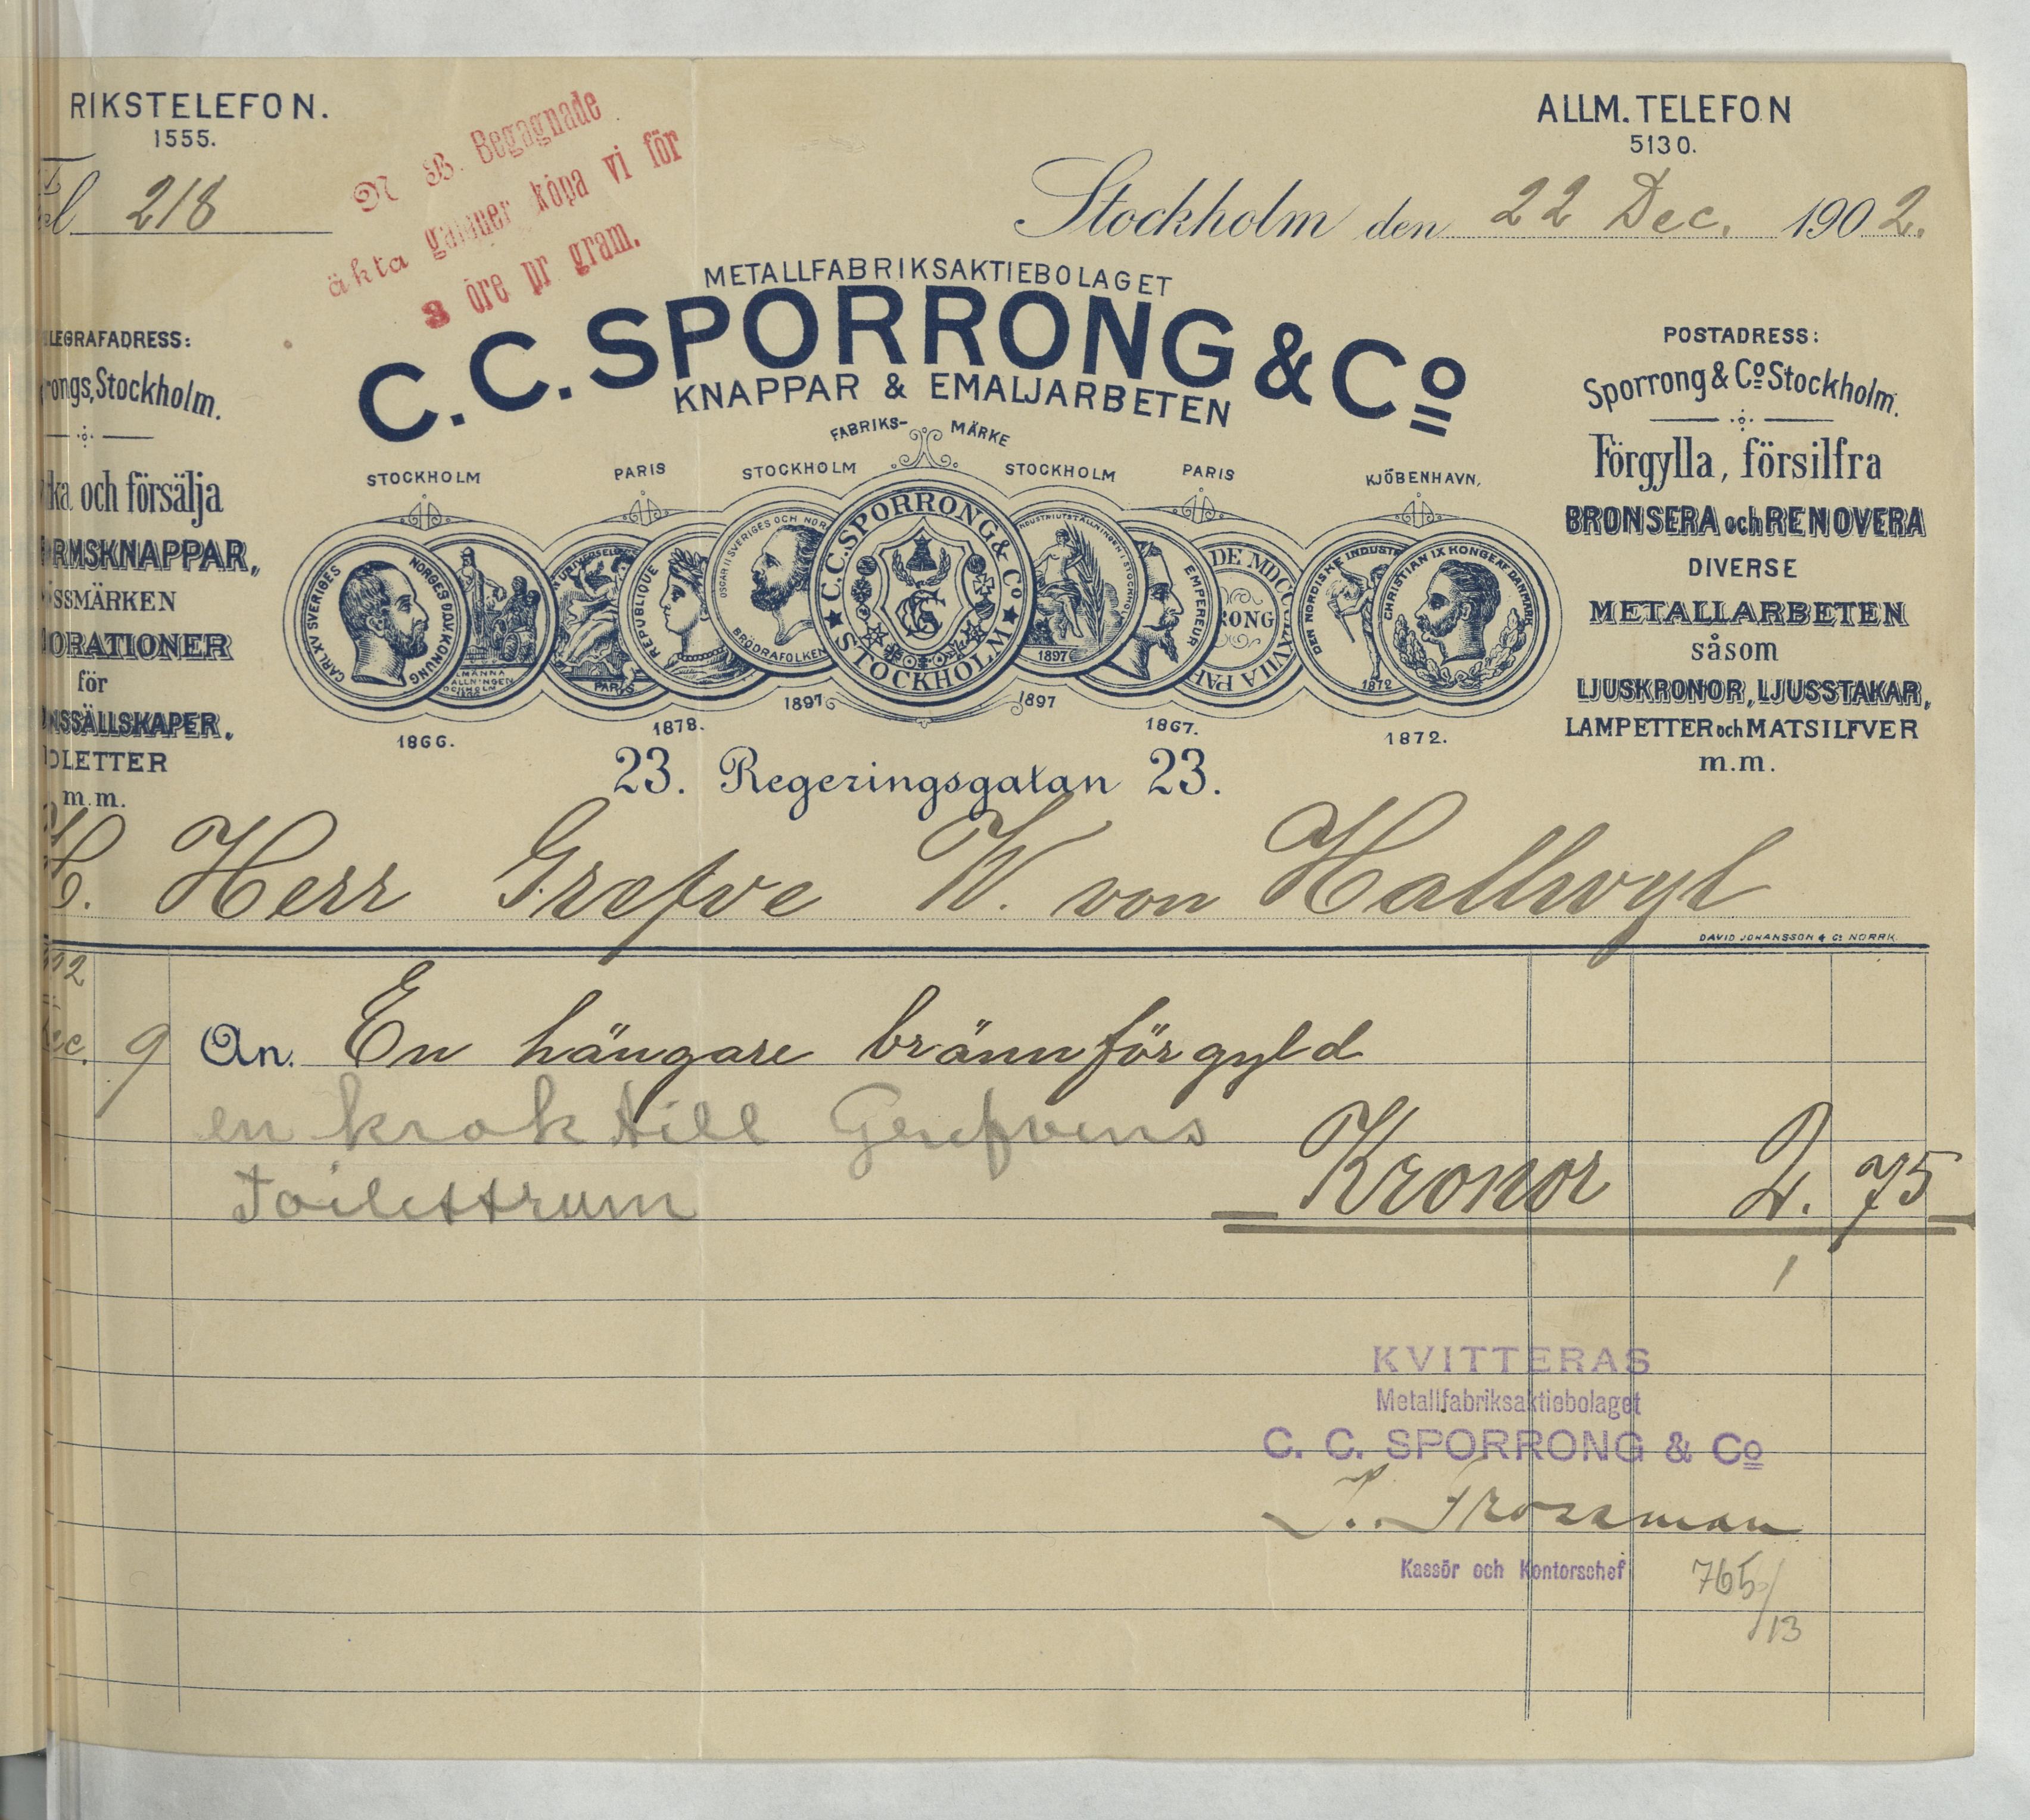 RIKSTELEFON.
1555.
218
N B. Begagnade
äkta galoner köpa vi för
8 öre pr gram.
ALLM. TELEFON
5130.
Stockholm den 22 Dec. 1902.
METALLFABRIKSAKTIEBOLAGET
C. C. SPORRONG & Co
KNAPPAR & EMALJARBETEN
FABRIKS- MÄRKE
LEGRAFADRESS:
rongs, Stockholm.
ka och försälja
RMSKNAPPAR,
SSMÄRKEN
ORATIONER
för
NSSÄLLSKAPER.
OLETTER
m.m.
POSTADRESS:
Sporrong & Co Stockholm.
Förgylla, försilfra
BRONSERA och RENOVERA
DIVERSE
METALLARBETEN
såsom
LJUSKRONOR, LJUSSTAKAR,
LAMPETTER och MATSILFVER
m.m.
STOCKHOLM PARIS STOCKHOLM STOCKHOLM PARIS KJÖBENHAVN.
CARL XV SVERIGES NORGES
REPUBLIQUE
PARIS
OSCAR II SVERIGES OCH NOR
BRÖDRAFOLKEN
C.C. SPORRONG & Co STOCKHOLM
INDUSTRIUTSTÄLLNINGEN I STOCKHOLM
1897
EMPEREUR
RONG
DEN NORDISKE INDUSTRI
1872
CHRISTIAN IX KONGE AF DANMARK
1866. 1878. 1897 1897 1867. 1872.
23. Regeringsgatan 23.
Herr Grefve W. von Hallwyl
DAVID JOHANSSON & Co NORRK.
9 An. En hängare brännförgyld
en krok till Grefvens
Toilettrum
Kronor 2.75
KVITTERAS
Metallfabriksaktiebolaget
C. C. SPORRONG & Co
Kassör och Kontorschef
765/13